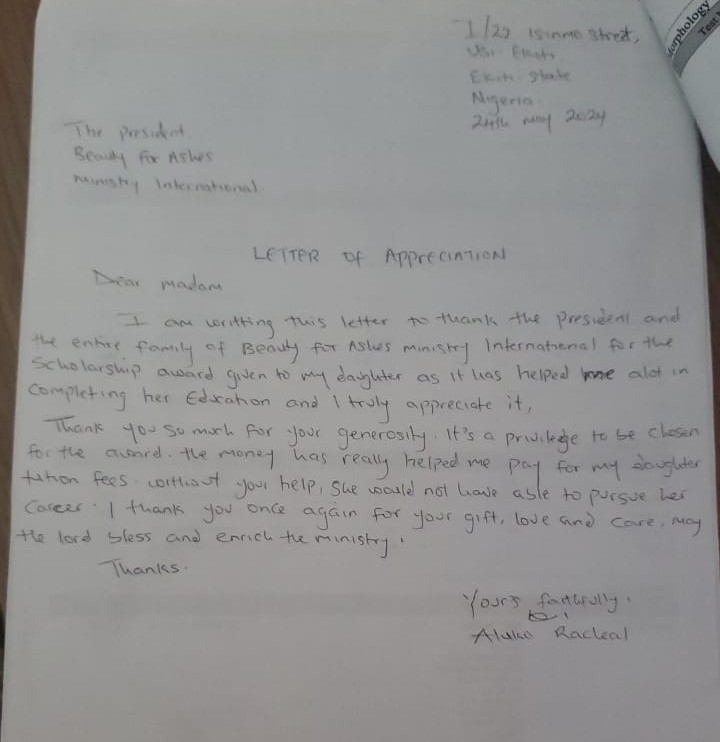 1/22 Isinmo Street,
Usi Ekiti,
Ekiti State
Nigeria
24th may 2024
The president
Beauty For Ashes
ministry International
LETTER OF APPRECIATION
Dear madam
I am writting this letter to thank the president and
the entire family of Beauty for Ashes ministry International for the
Scholarship award given to my daughter as it has helped me alot in
completing her Education and I truly appreciate it,
Thank you so much for your generosity. It's a priviledge to be chosen
for the award. the money has really helped me pay for my daughter
tution fees. without your help, She would not have able to pursue her
Career. I thank you once again for your gift, love and care. may
the lord bless and enrich the ministry.
Thanks.
Yours faithfully.
Aluko Racheal
orphology
Text